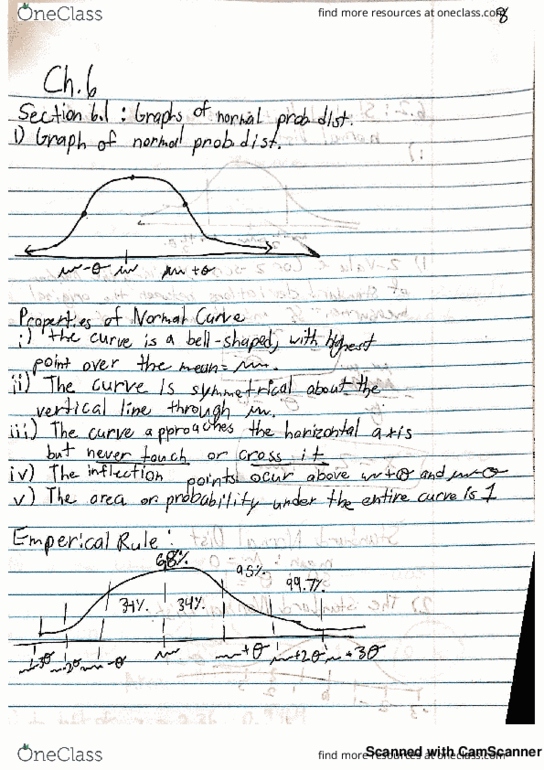 OneClass
find more resources at oneclass.com
8
Ch.6
Section 6.1 : Graphs of normal prob dist.
1) Graph of normal prob dist.
μ-θ μ μ+θ
Properties of Normal Curve
i) the curve is a bell-shaped, with highest
point over the mean = μ.
ii) The curve is symmetrical about the
vertical line through μ.
iii) The curve approaches the horizontal axis
but never touch or cross it
iv) The inflection points ocur above μ+θ and μ-θ
v) The area or probability under the entire curve is 1
Emperical Rule:
68%
95%
99.7%
34% 34%
μ-3θ μ-2θ μ-θ μ μ+θ μ+2θ μ+3θ
OneClass
find more resources at oneclass.com
Scanned with CamScanner